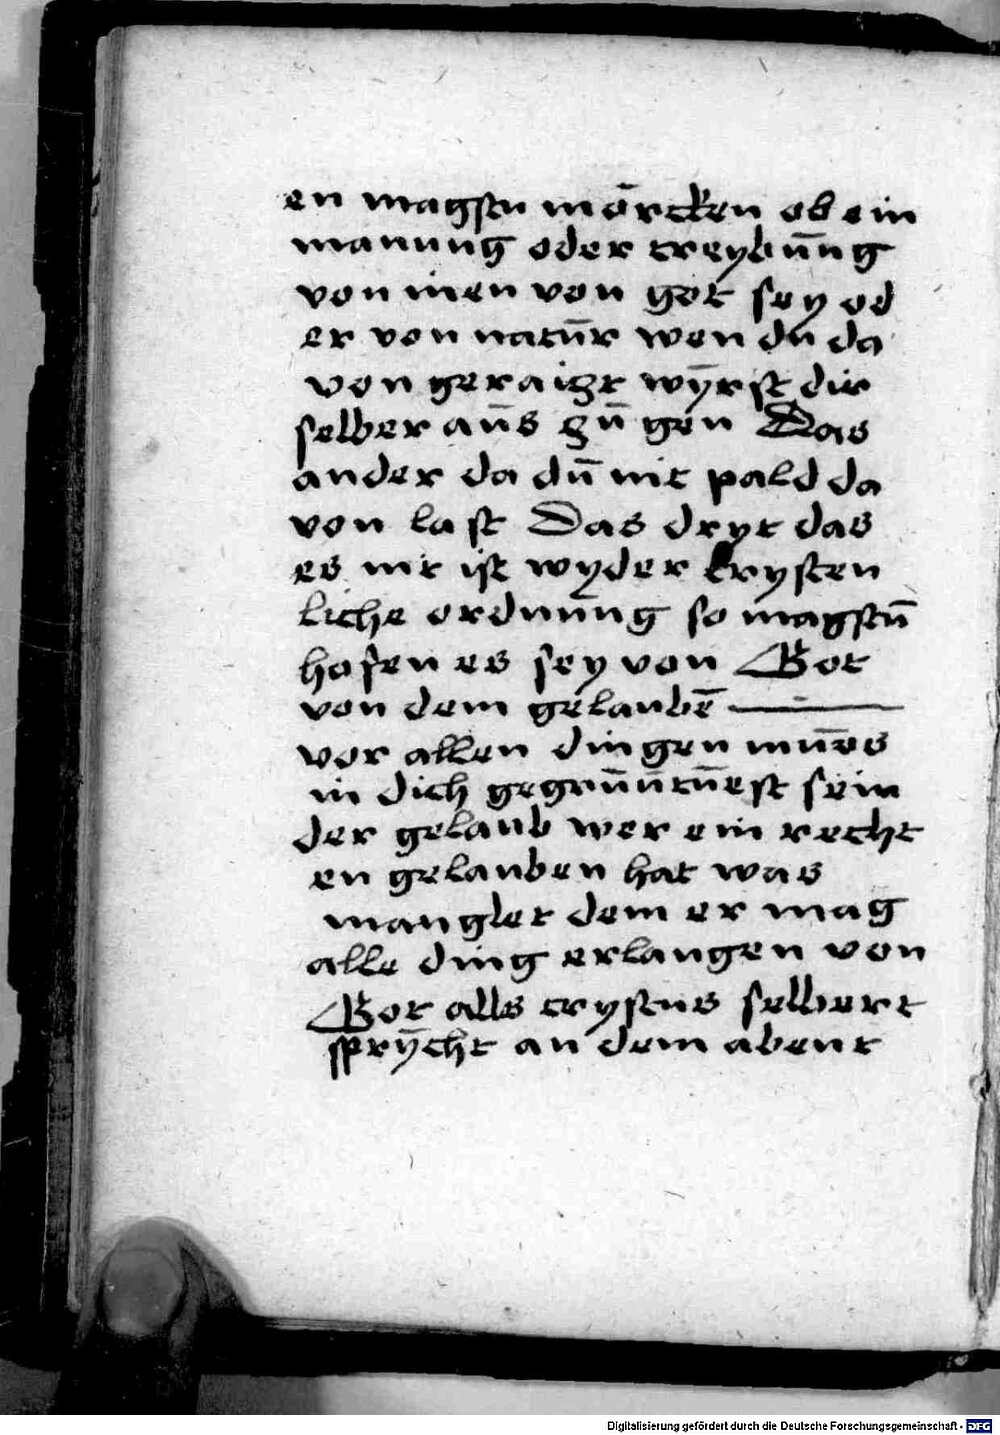 en magstu mörcken ob ein
manung oder treybūng
von inen von got sey od
er von natūr wen du da
von geraitzt wȳrst dir
selber aūs zū gen Das
ander da dū nit pald da
von last Das dryt das
es nit ist wyder krysten
liche ordnūng so magstū
hofen es sey von Got
von dem gelaubē
vor allen dingen mūes
in dich gegrūntūest sein
der gelaub wer ein recht
en gelauben hat was
manglet dem er mag
alle ding erlangen von
Got alls crystus selbert
sprȳcht an dem abent
Digitalisierung gefördert durch die Deutsche Forschungsgemeinschaft - DFG